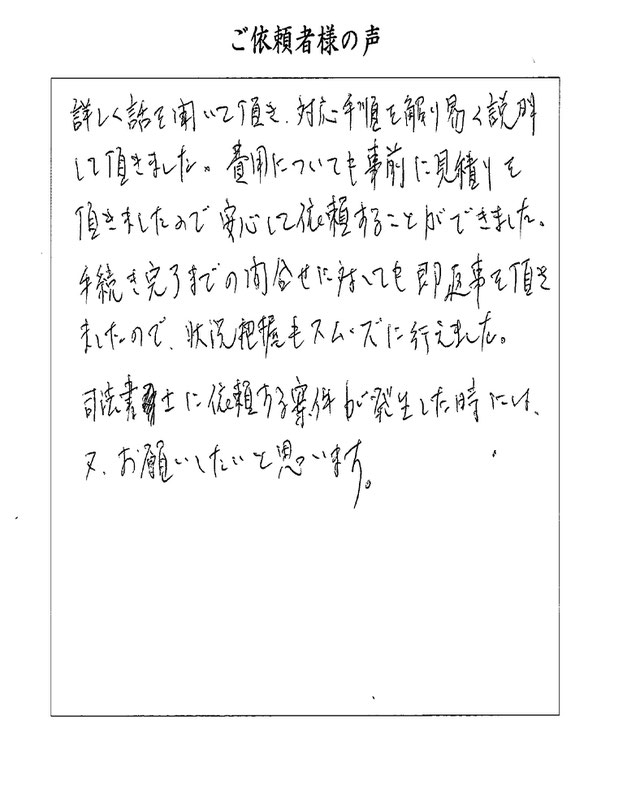 ご依頼者様の声
詳しく話を聞いて頂き、対応手順を解り易く説明
して頂きました。費用についても事前に見積りを
頂きましたので安心して依頼することができました。
手続き完了までの問合せに対しても即返事を頂き
ましたので、状況把握もスムーズに行えました。
司法書士に依頼する案件が発生した時には、
又、お願いしたいと思います。